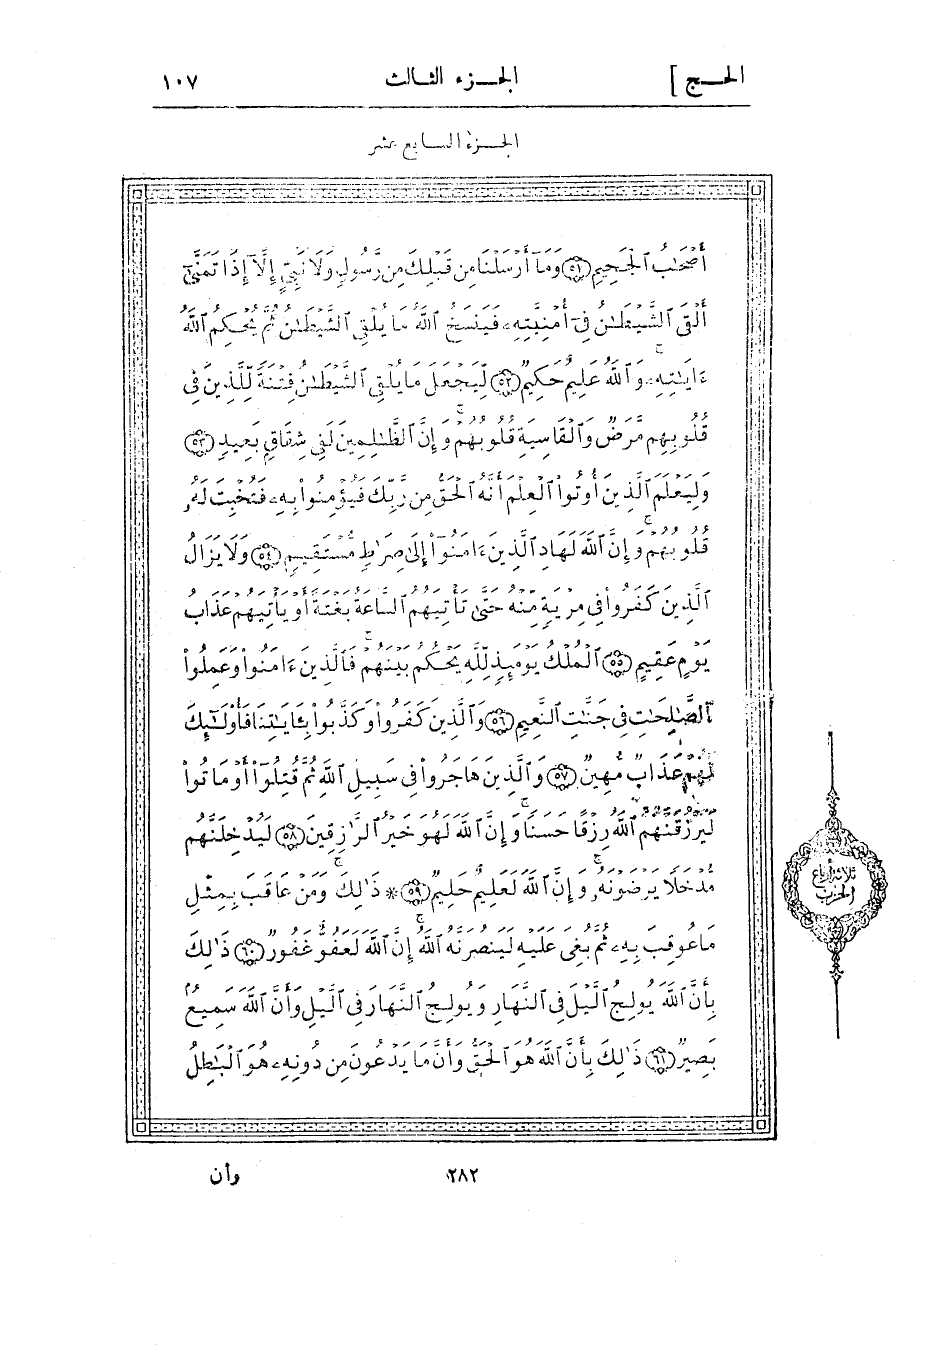 الحـج ]
الجـزء الثالث
١٠٧
الجـزء السابع عشر
أَصْحَٰبُ ٱلْجَحِيمِ ﴿٥١﴾ وَمَآ أَرْسَلْنَا مِن قَبْلِكَ مِن رَّسُولٍ وَلَا نَبِيٍّ إِلَّآ إِذَا تَمَنَّىٰٓ
أَلْقَى ٱلشَّيْطَٰنُ فِىٓ أُمْنِيَّتِهِۦ فَيَنسَخُ ٱللَّهُ مَا يُلْقِى ٱلشَّيْطَٰنُ ثُمَّ يُحْكِمُ ٱللَّهُ
ءَايَٰتِهِۦ وَٱللَّهُ عَلِيمٌ حَكِيمٌ ﴿٥٢﴾ لِّيَجْعَلَ مَا يُلْقِى ٱلشَّيْطَٰنُ فِتْنَةً لِّلَّذِينَ فِى
قُلُوبِهِم مَّرَضٌ وَٱلْقَاسِيَةِ قُلُوبُهُمْ وَإِنَّ ٱلظَّٰلِمِينَ لَفِى شِقَاقٍ بَعِيدٍ ﴿٥٣﴾
وَلِيَعْلَمَ ٱلَّذِينَ أُوتُوا۟ ٱلْعِلْمَ أَنَّهُ ٱلْحَقُّ مِن رَّبِّكَ فَيُؤْمِنُوا۟ بِهِۦ فَتُخْبِتَ لَهُۥ
قُلُوبُهُمْ وَإِنَّ ٱللَّهَ لَهَادِ ٱلَّذِينَ ءَامَنُوٓا۟ إِلَىٰ صِرَٰطٍ مُّسْتَقِيمٍ ﴿٥٤﴾ وَلَا يَزَالُ
ٱلَّذِينَ كَفَرُوا۟ فِى مِرْيَةٍ مِّنْهُ حَتَّىٰ تَأْتِيَهُمُ ٱلسَّاعَةُ بَغْتَةً أَوْ يَأْتِيَهُمْ عَذَابُ
يَوْمٍ عَقِيمٍ ﴿٥٥﴾ ٱلْمُلْكُ يَوْمَئِذٍ لِّلَّهِ يَحْكُمُ بَيْنَهُمْ فَٱلَّذِينَ ءَامَنُوا۟ وَعَمِلُوا۟
ٱلصَّٰلِحَٰتِ فِى جَنَّٰتِ ٱلنَّعِيمِ ﴿٥٦﴾ وَٱلَّذِينَ كَفَرُوا۟ وَكَذَّبُوا۟ بِـَٔايَٰتِنَا فَأُو۟لَٰٓئِكَ
لَهُمْ عَذَابٌ مُّهِينٌ ﴿٥٧﴾ وَٱلَّذِينَ هَاجَرُوا۟ فِى سَبِيلِ ٱللَّهِ ثُمَّ قُتِلُوٓا۟ أَوْ مَاتُوا۟
لَيَرْزُقَنَّهُمُ ٱللَّهُ رِزْقًا حَسَنًا وَإِنَّ ٱللَّهَ لَهُوَ خَيْرُ ٱلرَّٰزِقِينَ ﴿٥٨﴾ لَيُدْخِلَنَّهُم
مُّدْخَلًا يَرْضَوْنَهُۥ وَإِنَّ ٱللَّهَ لَعَلِيمٌ حَلِيمٌ ﴿٥٩﴾ * ذَٰلِكَ وَمَنْ عَاقَبَ بِمِثْلِ
مَا عُوقِبَ بِهِۦ ثُمَّ بُغِىَ عَلَيْهِ لَيَنصُرَنَّهُ ٱللَّهُ إِنَّ ٱللَّهَ لَعَفُوٌّ غَفُورٌ ﴿٦٠﴾ ذَٰلِكَ
بِأَنَّ ٱللَّهَ يُولِجُ ٱلَّيْلَ فِى ٱلنَّهَارِ وَيُولِجُ ٱلنَّهَارَ فِى ٱلَّيْلِ وَأَنَّ ٱللَّهَ سَمِيعٌۢ
بَصِيرٌ ﴿٦١﴾ ذَٰلِكَ بِأَنَّ ٱللَّهَ هُوَ ٱلْحَقُّ وَأَنَّ مَا يَدْعُونَ مِن دُونِهِۦ هُوَ ٱلْبَٰطِلُ
ثلاثة أرباع
الحزب
٢٨٢
وأن